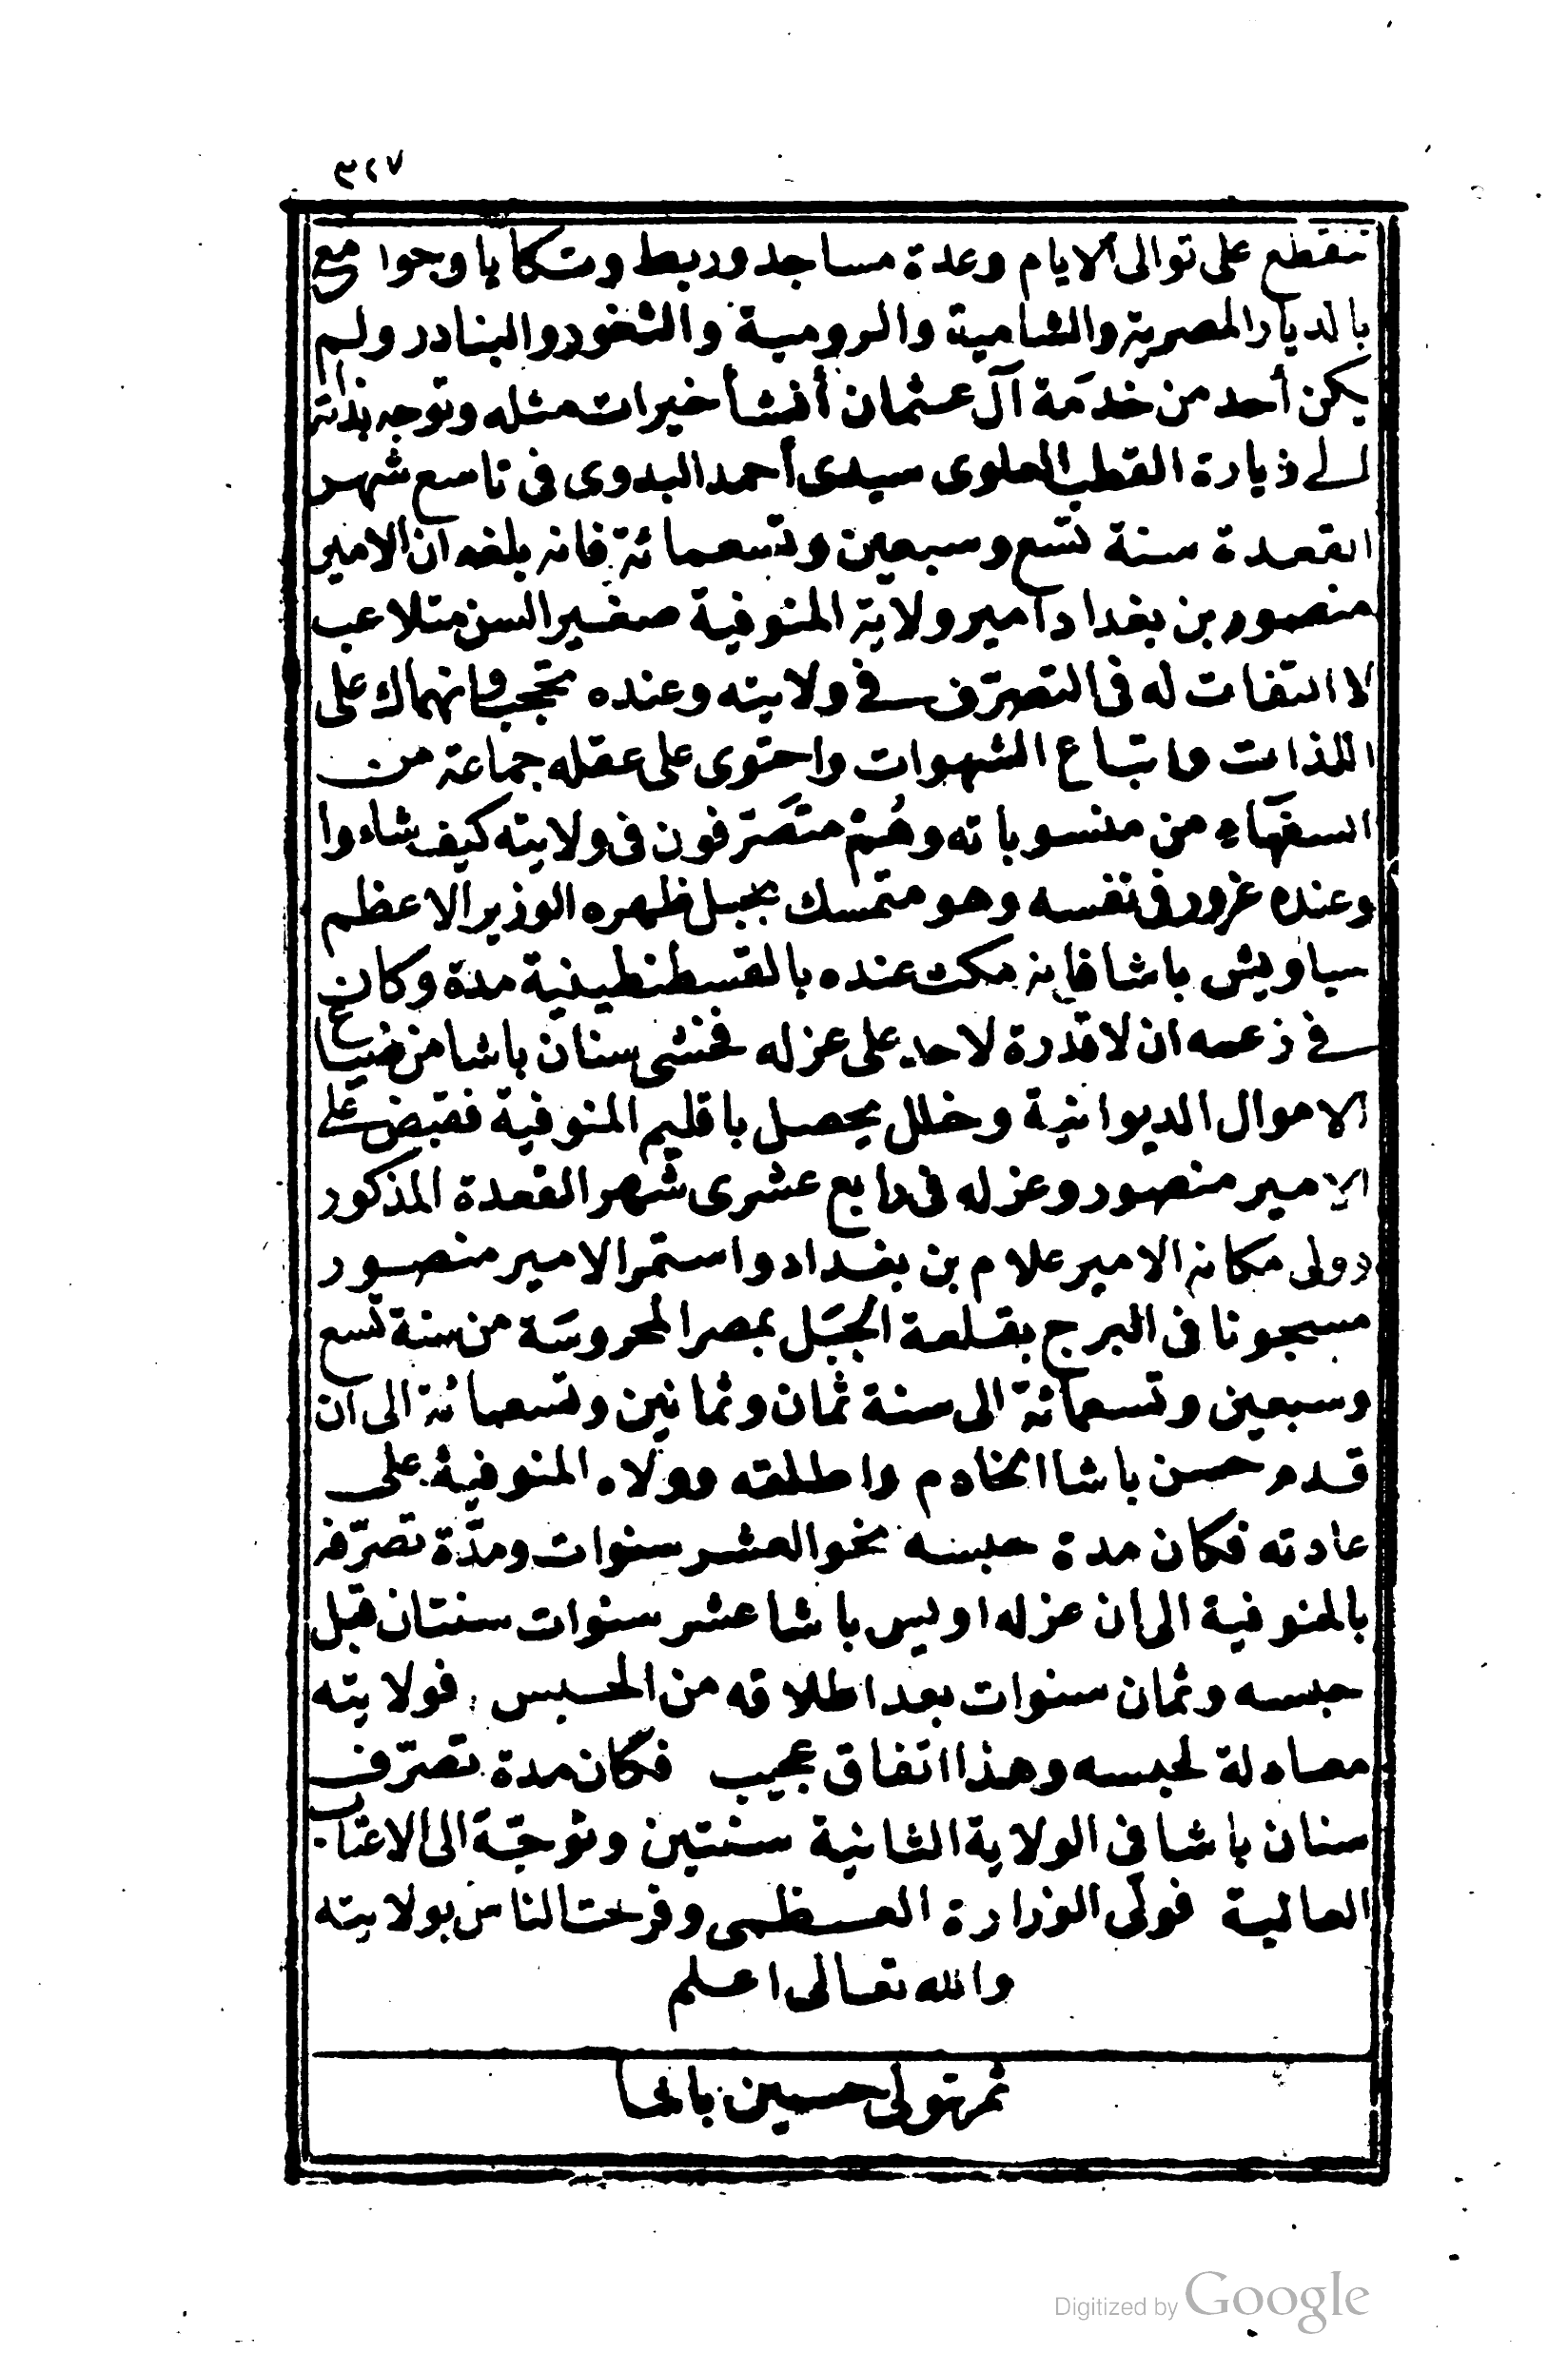 ٣٢٧
تنقطع على توالى الايام وعدة مساجد وربط وتكايا وجوامع
بالديار المصرية والشامية والرومية والثغور والبنادر ولم
يكن أحد من خدمة آل عثمان أنشأ خيرات مثله وتوجه بذاته
الى زيارة القطب العلوى سيدى أحمد البدوى فى تاسع شهر
القعدة سنة تسع وسبعين وتسعمائة فانه بلغه ان الامير
منصور بن بغداد امير ولاية المنوفية صغير السن متلاعب
لا التفات له فى التصرّف فى ولايته وعنده تحجب وانهماك على
اللذات واتباع الشهوات واحتوى على عقله جماعة من
السفهاء من منسوباته وهُمْ متصَرّفون فى ولايته كيف شاءوا
وعنده غرور فى نفسه وهو متمسك بحبل ظهره الوزير الاعظم
سياويش باشا فانه مكث عنده بالقسطنطينية مدة وكان
فى زعمه ان لا قدرة لاحد على عزله فخشى سنان باشا من ضياع
الاموال الديوانية وخلل يحصل باقليم المنوفية فقبض على
الامير منصور وعزله فى رابع عشرى شهر القعدة المذكور
وولى مكانه الامير علام بن بغداد واستمر الامير منصور
مسجونا فى البرج بقلعة الجبَل بمصر المحروسَة من سنة تسع
وسبعين وتسعمائة الى سنة ثمان وثمانين وتسعمائة الى ان
قدم حسن باشا الخادم واطلقه وولاه المنوفية على
عادته فكان مدة حبسه نحو العشر سنوات ومدّة تصرّفه
بالمنوفية الى ان عزله اويس باشا عشر سنوات سنتان قبل
حبسه وثمان سنوات بعد اطلاقه من الحبس فولايته
معادلة لحبسه وهذا اتفاق عجيب فكان مدة تصرّف
سنان باشا فى الولاية الثانية سنتين وتوجّه الى الاعتاب
العالية فولّى الوزارة العظمى وفرحت الناس بولايته
والله تعالى اعلم
ثم تولى حسين باشا
Digitized by Google